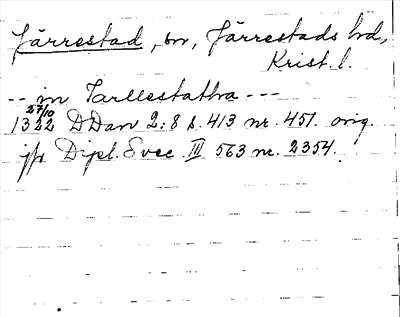 Järrestad, sn, Järrestads hd,
Krist. l.
-- in Tarllestathra ---
27/10
1322 DDan 2:8 s. 413 nr. 451. orig.
jfr Dipl. Svec. III 563 nr. 2354.